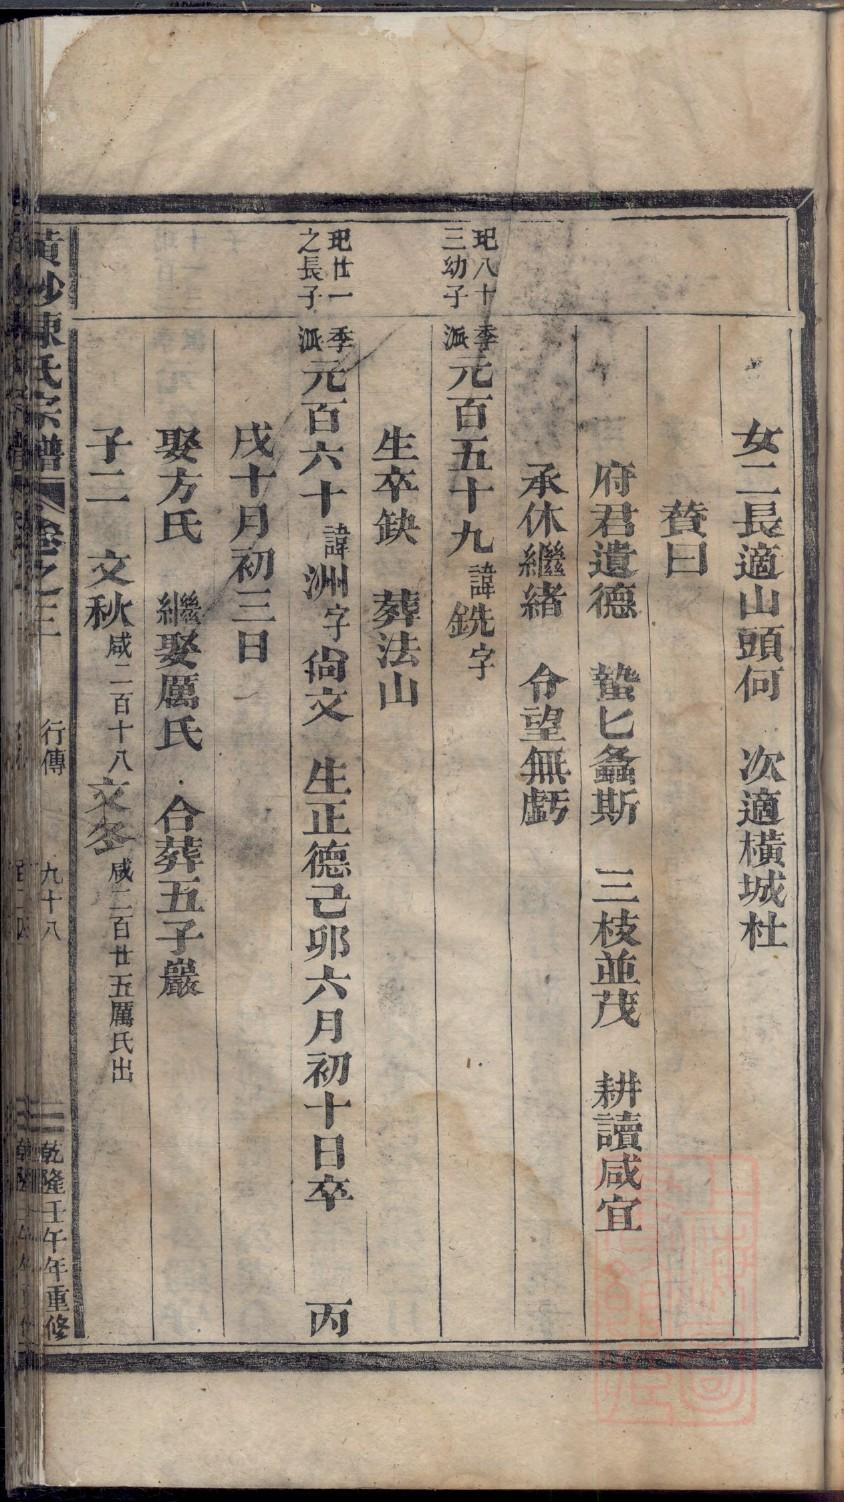 女二長適山頭何　次適橫城杜
贊曰
府君遺德　蟄匕螽斯　三枝並茂　耕讀咸宜
承休繼緒　令望無虧
玘八十
三幼子
季派
元百五十九諱銑字
生卒缺　葬法山
玘廿一
之長子
季派
元百六十諱洲字尙文　生正德己卯六月初十日卒　丙
戌十月初三日
娶方氏　繼娶厲氏　合葬五子巖
子二　文秋咸二百十八文冬咸二百廿五厲氏出
黃沙陳氏宗譜　卷之三　行傳　九十八　乾隆壬午年重修